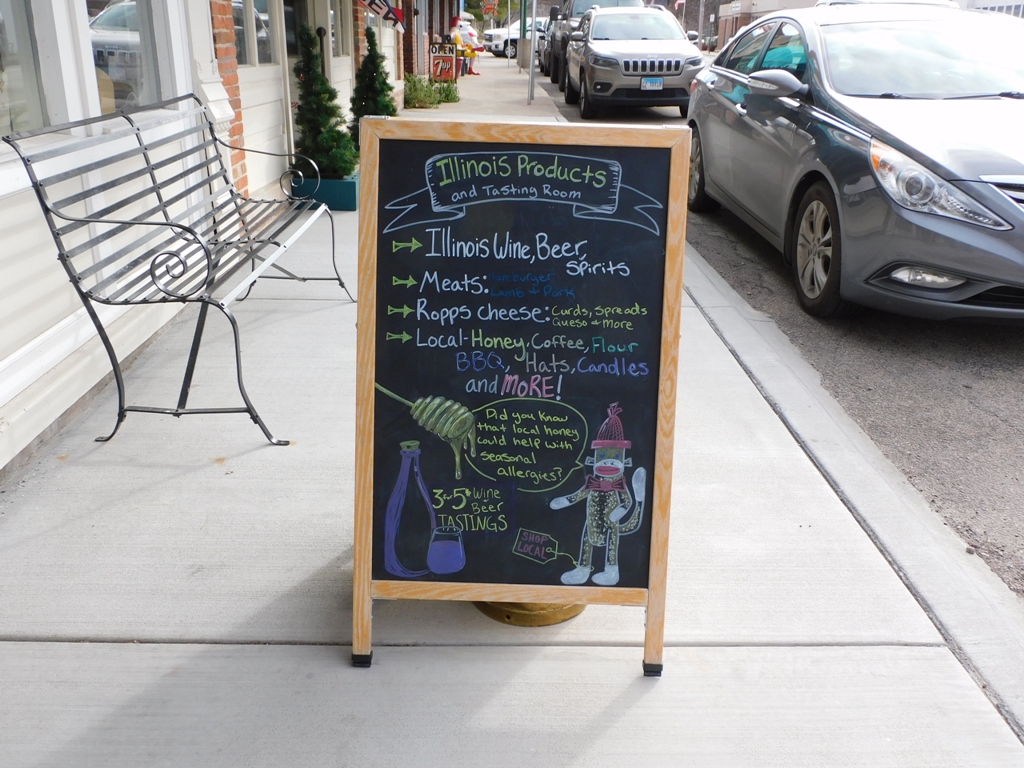 OPEN
7up
Illinois Products
and Tasting Room
Illinois Wine, Beer,
Spirits
Meats: Hamburger
Lamb & Pork
Ropps cheese: Curds, Spreads
Queso & More
Local-Honey, Coffee, Flour
BBQ, Hats, Candles
and MORE!
Did you know
that local honey
could help with
seasonal
allergies?
3 for 5$ Wine
Beer
TASTINGS
SHOP
LOCAL